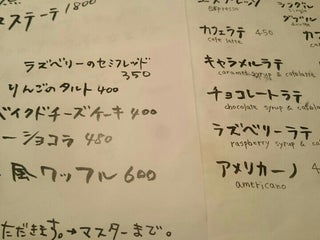 ステーキ 1800
ラズベリーのセミフレッド
350
りんごのタルト 400
ベイクドチーズケーキ 400
ーショコラ 480
風ワッフル 600
ただきます。→マスターまで。
エスプレッソ
espresso
シングル
single
ダブル
double
カフェラテ 450
cafe latte
キャラメルラテ
caramel syrup & cafelatte
チョコレートラテ
chocolate syrup & cafe
ラズベリーラテ
raspberry syrup & ca
アメリカーノ 4
americano